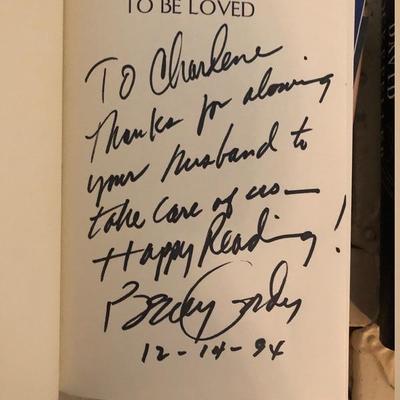 TO BE LOVED
To Charlene
Thanks for alowing
your husband to
take care of us—
Happy Reading!
Berry Gordy
12-14-94
DAVID